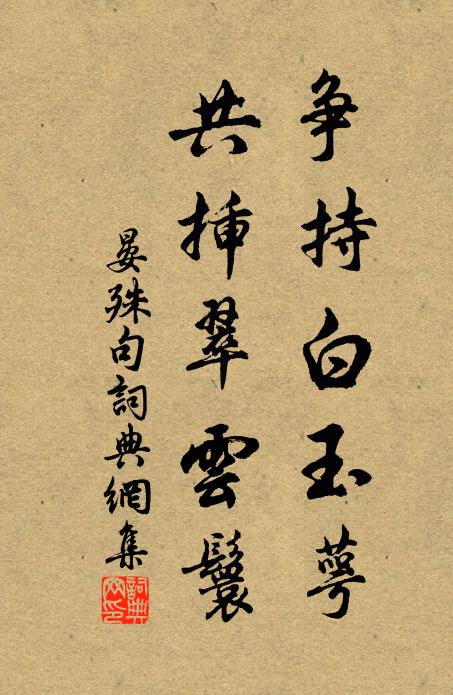 争持白玉萼
共挿翠雲鬟
晏殊句詞典網集
詞典網印